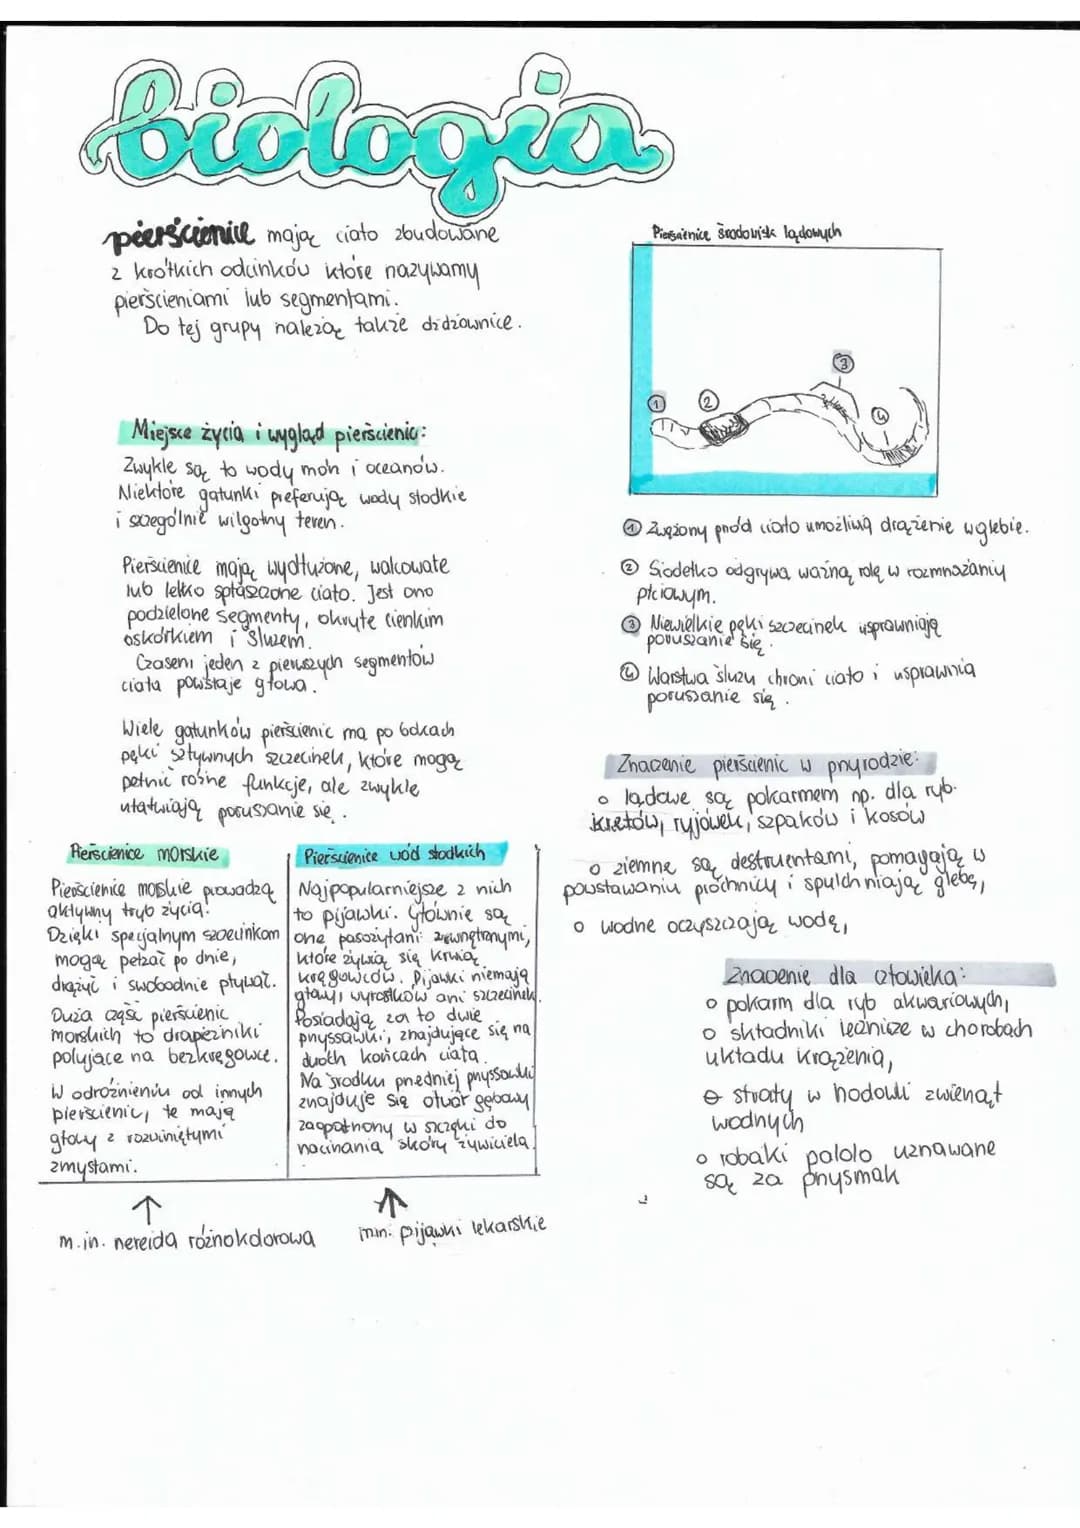 biologia
pierścienice mają ciało zbudowane
z krótkich odcinków które nazywamy
pierścieniami lub segmentami.
Do tej grupy należą także dżdżownice.
Miejsce życia i wygląd pierścienic:
Zwykle są to wody mórz i oceanów.
Niektóre gatunki preferują wody słodkie
i szczególnie wilgotny teren.
Pierścienice mają wydłużone, walcowate
lub lekko spłaszczone ciało. Jest ono
podzielone segmenty, okryte cienkim
oskórkiem i śluzem.
Czasem jeden z pierwszych segmentów
ciała powstaje głowa.
Wiele gatunków pierścienic ma po bokach
pęki sztywnych szczecinek, które mogą
pełnić różne funkcje, ale zwykle
ułatwiają poruszanie się.
Pierścienice morskie
Pierścienice morskie prowadzą
aktywny tryb życia.
Dzięki specjalnym szczecinkom
mogą pełzać po dnie,
drążyć i swobodnie pływać.
Duża część pierścienic
morskich to drapieżniki
polujące na bezkręgowce.
W odróżnieniu od innych
pierścienic, te mają
głowy z rozwiniętymi
zmysłami.
m.in. nereida różnokolorowa
Pierścienice wód słodkich
Najpopularniejsze z nich
to pijawki. Głównie są
one pasożytami zewnętrznymi,
które żywią się krwią
kręgowców. Pijawki niemają
głowy, wyrostków ani szczecinek.
Posiadają za to dwie
przyssawki, znajdujące się na
dwóch końcach ciała.
Na środku przedniej przyssawki
znajduje się otwór gębowy
zaopatrzony w szczęki do
nacinania skóry żywiciela.
m.in. pijawki lekarskie
Pierścienice środowisk lądowych
1
2
3
4
1 Zwężony przód ciało umożliwia drążenie w glebie.
2 Siodełko odgrywa ważną rolę w rozmnażaniu
płciowym.
3 Niewielkie pęki szczecinek usprawniają
poruszanie się.
4 Warstwa śluzu chroni ciało i usprawnia
poruszanie się.
Znaczenie pierścienic w przyrodzie:
o lądowe są pokarmem np. dla ryb.
kretów, ryjówek, szpaków i kosów
o ziemne są destruentami, pomagają w
powstawaniu próchnicy i spulchniają glebę,
o wodne oczyszczają wodę,
Znaczenie dla człowieka:
o pokarm dla ryb akwariowych,
o składniki lecznicze w chorobach
układu krążenia,
o straty w hodowli zwierząt
wodnych
o robaki pololo uznawane
są za przysmak